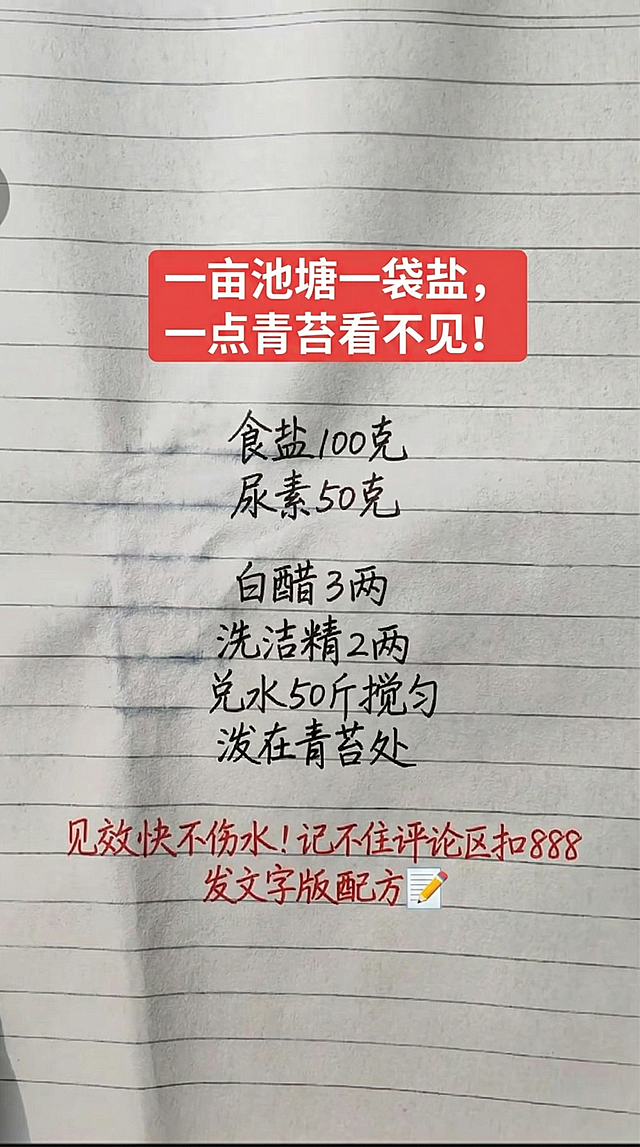 一亩池塘一袋盐，
一点青苔看不见！
食盐100克
尿素50克
白醋3两
洗洁精2两
兑水50斤搅匀
泼在青苔处
见效快不伤水！记不住评论区扣888
发文字版配方📝